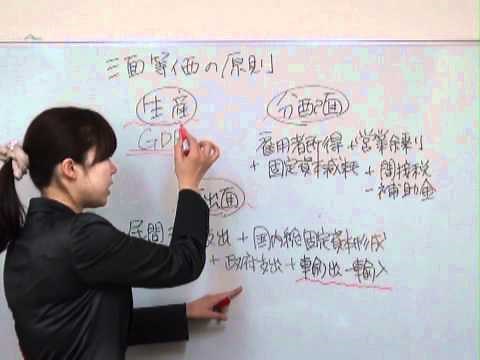 三面等価の原則
生産
GDP
分配面
雇用者所得 + 営業余剰
+ 固定資本減耗 + 間接税
- 補助金
出面
民間 支出 + 国内総固定資本形成
+ 政府支出 + 輸出 - 輸入